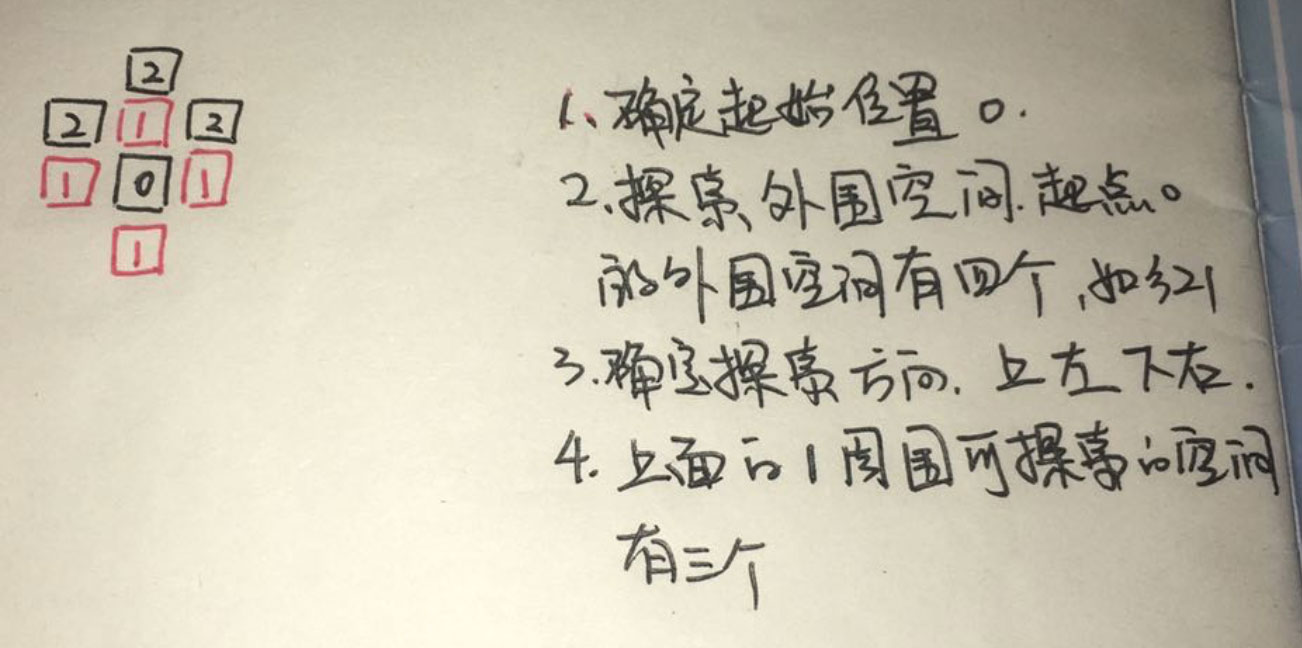 2
2 1 2
1 0 1
1
1、确定起始位置 0.
2、探索、外围空间.起点0
的外围空间有四个,如红1
3.确定探索方向. 上左下右.
4. 上面的1周围可探索的空间
有三个